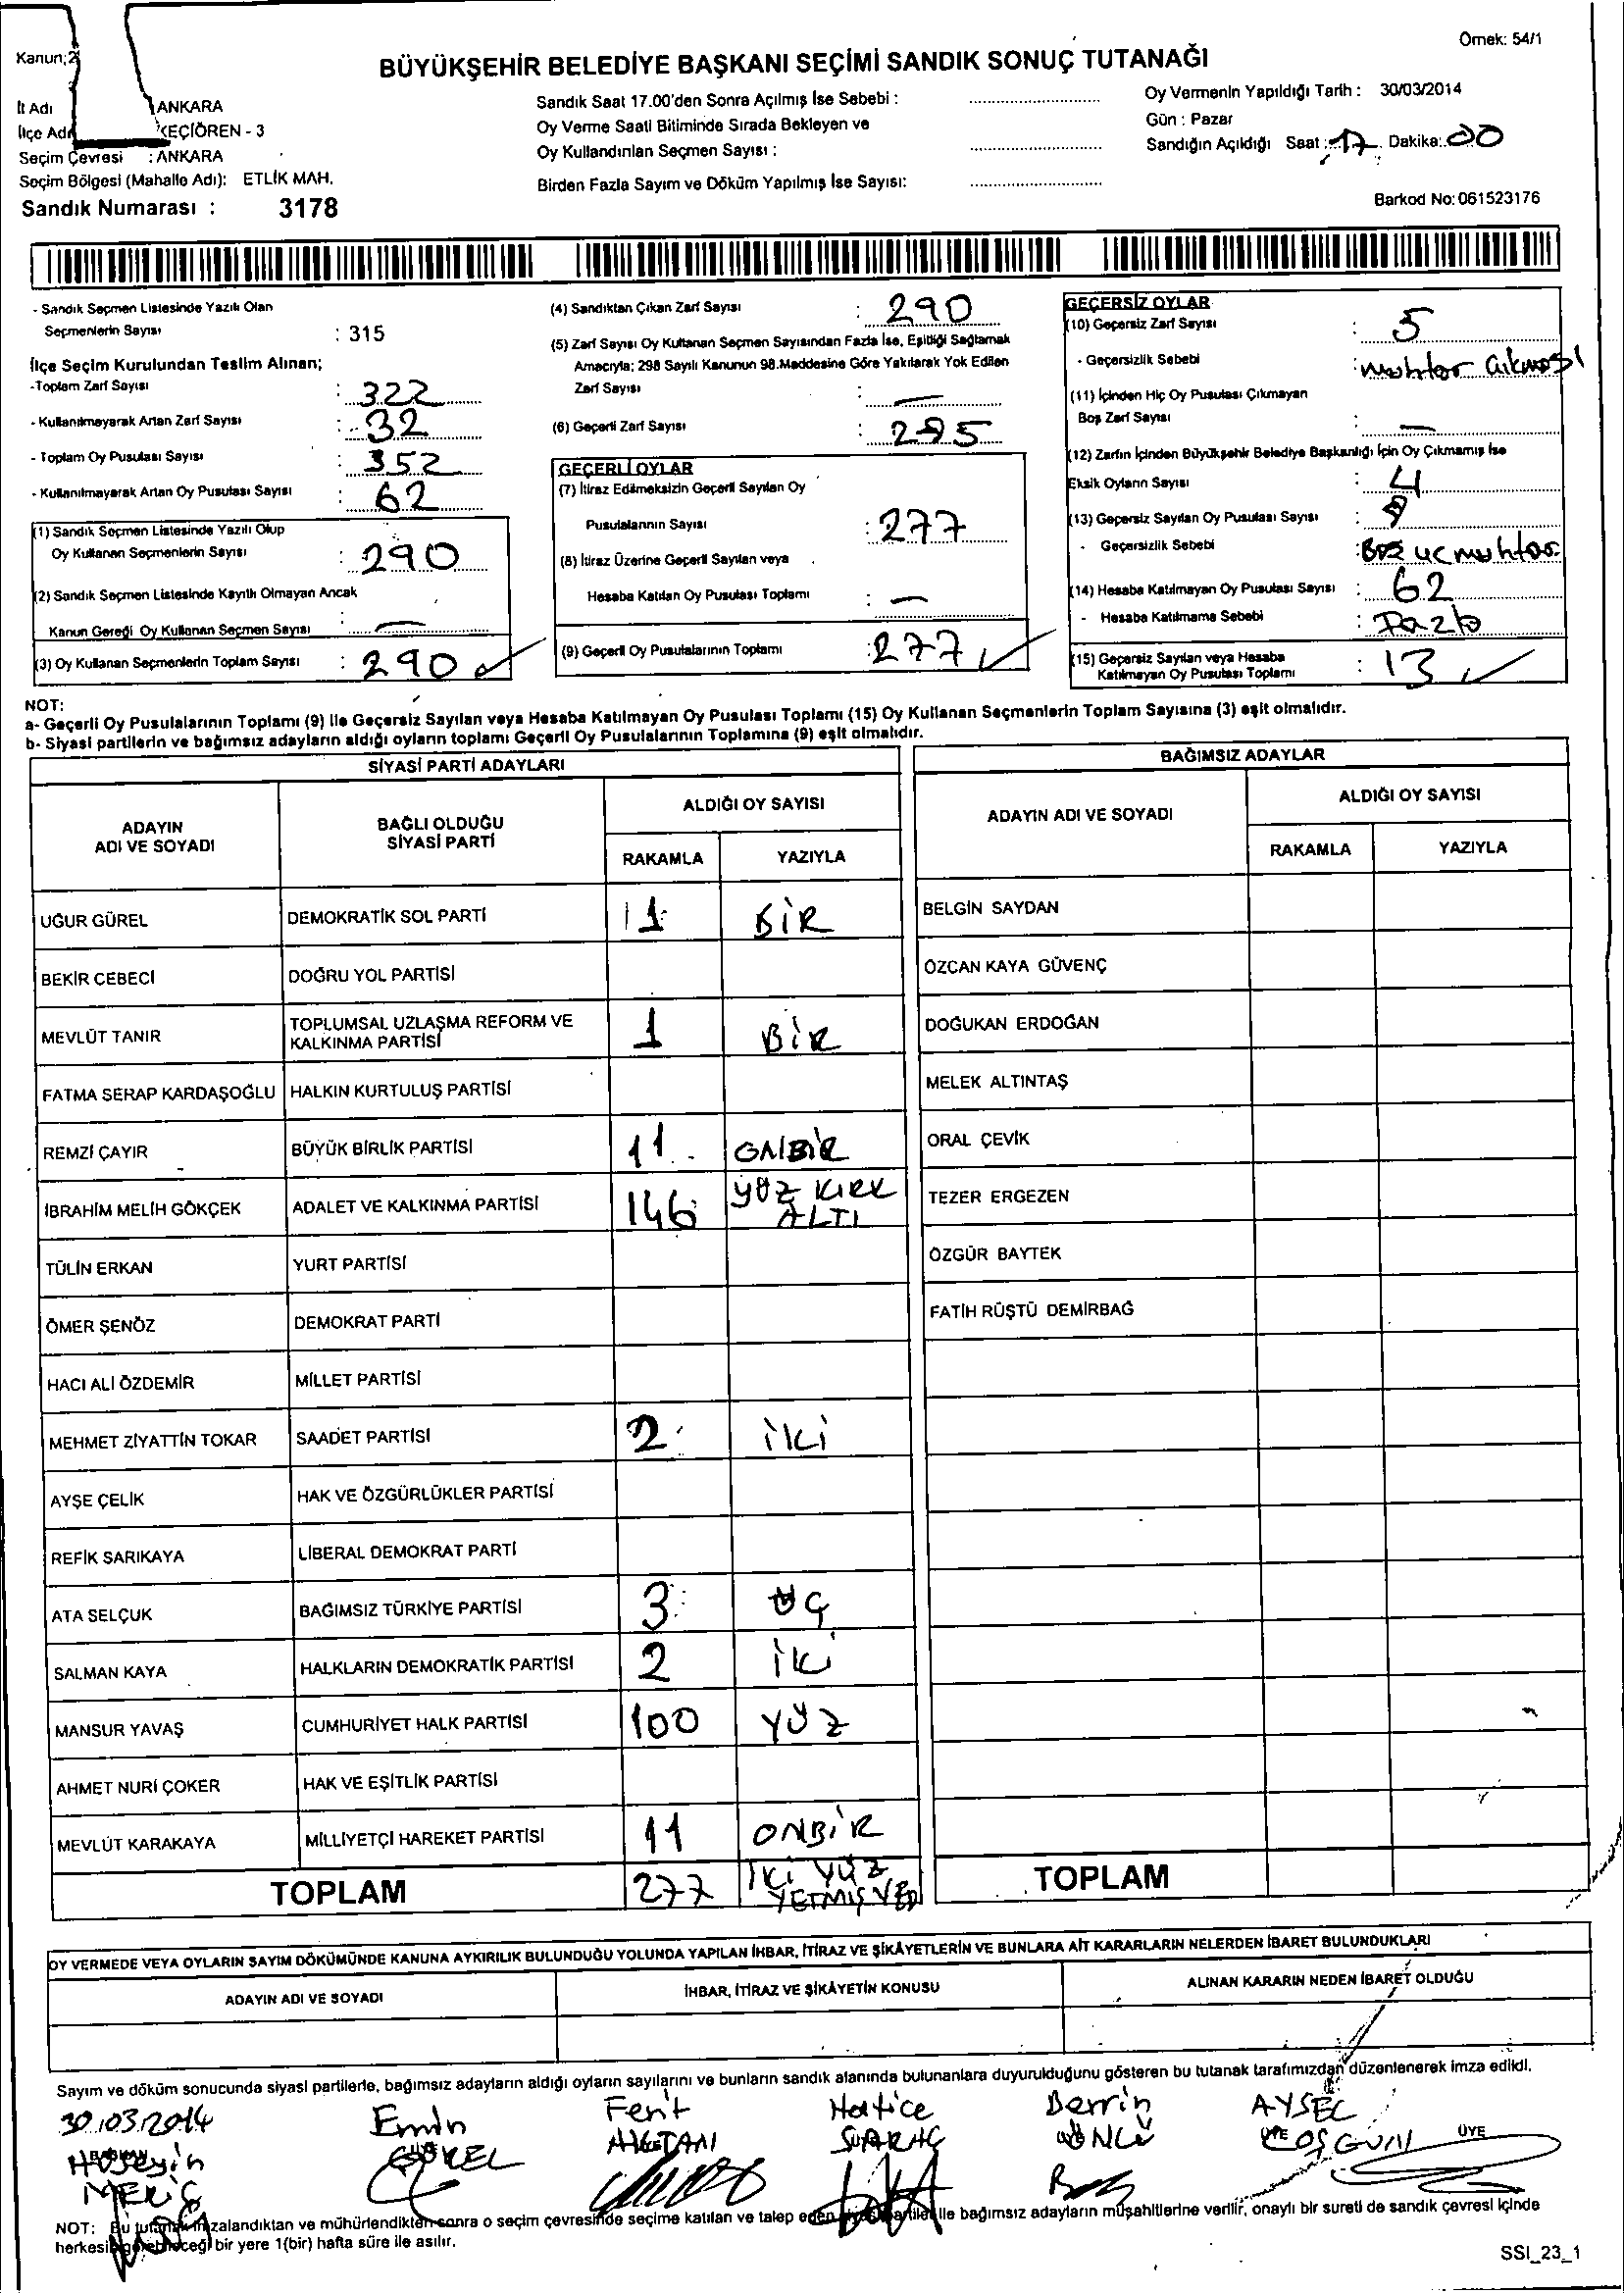 Örnek: 54/1
Kanun;2
BÜYÜKŞEHİR BELEDİYE BAŞKANI SEÇİMİ SANDIK SONUÇ TUTANAĞI
İl Adı ANKARA
İlçe Adı KEÇİÖREN - 3
Seçim Çevresi : ANKARA
Seçim Bölgesi (Mahalle Adı): ETLİK MAH.
Sandık Numarası : 3178
Sandık Saat 17.00'den Sonra Açılmış İse Sebebi :
Oy Verme Saati Bitiminde Sırada Bekleyen ve
Oy Kullandırılan Seçmen Sayısı :
Birden Fazla Sayım ve Döküm Yapılmış İse Sayısı:
Oy Vermenin Yapıldığı Tarih : 30/03/2014
Gün : Pazar
Sandığın Açıldığı Saat : 17 Dakika: 00
Barkod No: 061523176
- Sandık Seçmen Listesinde Yazılı Olan
Seçmenlerin Sayısı : 315
İlçe Seçim Kurulundan Teslim Alınan;
-Toplam Zarf Sayısı : 322
- Kullanılmayarak Artan Zarf Sayısı : 32
- Toplam Oy Pusulası Sayısı : 352
- Kullanılmayarak Artan Oy Pusulası Sayısı : 62
(1) Sandık Seçmen Listesinde Yazılı Olup
Oy Kullanan Seçmenlerin Sayısı : 290
(2) Sandık Seçmen Listesinde Kayıtlı Olmayan Ancak
Kanun Gereği Oy Kullanan Seçmen Sayısı : —
(3) Oy Kullanan Seçmenlerin Toplam Sayısı : 290
(4) Sandıktan Çıkan Zarf Sayısı : 290
(5) Zarf Sayısı Oy Kullanan Seçmen Sayısından Fazla İse, Eşitliği Sağlamak
Amacıyla; 298 Sayılı Kanunun 98.Maddesine Göre Yakılarak Yok Edilen
Zarf Sayısı : —
(6) Geçerli Zarf Sayısı : 285
GEÇERLİ OYLAR
(7) İtiraz Edilmeksizin Geçerli Sayılan Oy
Pusulalarının Sayısı : 277
(8) İtiraz Üzerine Geçerli Sayılan veya
Hesaba Katılan Oy Pusulası Toplamı : —
(9) Geçerli Oy Pusulalarının Toplamı : 277
GEÇERSİZ OYLAR
(10) Geçersiz Zarf Sayısı : 5
- Geçersizlik Sebebi : muhtar çıkması
(11) İçinden Hiç Oy Pusulası Çıkmayan
Boş Zarf Sayısı : —
(12) Zarfın İçinden Büyükşehir Belediye Başkanlığı İçin Oy Çıkmamış İse
Eksik Oyların Sayısı : 4
(13) Geçersiz Sayılan Oy Pusulası Sayısı :
- Geçersizlik Sebebi : Boz uc muhtar
(14) Hesaba Katılmayan Oy Pusulası Sayısı : 62
- Hesaba Katılmama Sebebi : Fazla
(15) Geçersiz Sayılan veya Hesaba
Katılmayan Oy Pusulası Toplamı : 13
NOT:
a- Geçerli Oy Pusulalarının Toplamı (9) ile Geçersiz Sayılan veya Hesaba Katılmayan Oy Pusulası Toplamı (15) Oy Kullanan Seçmenlerin Toplam Sayısına (3) eşit olmalıdır.
b- Siyasi partilerin ve bağımsız adayların aldığı oyların toplamı Geçerli Oy Pusulalarının Toplamına (9) eşit olmalıdır.
SİYASİ PARTİ ADAYLARI
ADAYIN
ADI VE SOYADI
BAĞLI OLDUĞU
SİYASİ PARTİ
ALDIĞI OY SAYISI
RAKAMLA YAZIYLA
UĞUR GÜREL DEMOKRATİK SOL PARTİ 1 BİR
BEKİR CEBECİ DOĞRU YOL PARTİSİ
MEVLÜT TANIR TOPLUMSAL UZLAŞMA REFORM VE
KALKINMA PARTİSİ 1 BİR
FATMA SERAP KARDAŞOĞLU HALKIN KURTULUŞ PARTİSİ
REMZİ ÇAYIR BÜYÜK BİRLİK PARTİSİ 11 ONBİR
İBRAHİM MELİH GÖKÇEK ADALET VE KALKINMA PARTİSİ 146 YÜZ KIRK
ALTI
TÜLİN ERKAN YURT PARTİSİ
ÖMER ŞENÖZ DEMOKRAT PARTİ
HACI ALİ ÖZDEMİR MİLLET PARTİSİ
MEHMET ZİYATTİN TOKAR SAADET PARTİSİ 2 İKİ
AYŞE ÇELİK HAK VE ÖZGÜRLÜKLER PARTİSİ
REFİK SARIKAYA LİBERAL DEMOKRAT PARTİ
ATA SELÇUK BAĞIMSIZ TÜRKİYE PARTİSİ 3 ÜÇ
SALMAN KAYA HALKLARIN DEMOKRATİK PARTİSİ 2 İKİ
MANSUR YAVAŞ CUMHURİYET HALK PARTİSİ 100 YÜZ
AHMET NURİ ÇOKER HAK VE EŞİTLİK PARTİSİ
MEVLÜT KARAKAYA MİLLİYETÇİ HAREKET PARTİSİ 11 ONBİR
TOPLAM 277 İKİ YÜZ
YETMİŞ YEDİ
BAĞIMSIZ ADAYLAR
ADAYIN ADI VE SOYADI
ALDIĞI OY SAYISI
RAKAMLA YAZIYLA
BELGİN SAYDAN
ÖZCAN KAYA GÜVENÇ
DOĞUKAN ERDOĞAN
MELEK ALTINTAŞ
ORAL ÇEVİK
TEZER ERGEZEN
ÖZGÜR BAYTEK
FATİH RÜŞTÜ DEMİRBAĞ
TOPLAM
OY VERMEDE VEYA OYLARIN SAYIM DÖKÜMÜNDE KANUNA AYKIRILIK BULUNDUĞU YOLUNDA YAPILAN İHBAR, İTİRAZ VE ŞİKÂYETLERİN VE BUNLARA AİT KARARLARIN NELERDEN İBARET BULUNDUKLARI
ADAYIN ADI VE SOYADI İHBAR, İTİRAZ VE ŞİKÂYETİN KONUSU ALINAN KARARIN NEDEN İBARET OLDUĞU
Sayım ve döküm sonucunda siyasi partilerle, bağımsız adayların aldığı oyların sayılarını ve bunların sandık alanında bulunanlara duyurulduğunu gösteren bu tutanak tarafımızdan düzenlenerek imza edildi.
30.03.2014 Emin Ferit Hatice Berrin AYSEL
BAŞKAN ÜYE ÜYE
Hüseyin ÖNCÜ COŞGUN
MERİÇ
NOT: Bu tutanak imzalandıktan ve mühürlendikten sonra o seçim çevresinde seçime katılan ve talep eden siyasi partiler ile bağımsız adayların müşahitlerine verilir, onaylı bir sureti de sandık çevresi içinde
herkesin görebileceği bir yere 1(bir) hafta süre ile asılır.
SSI_23_1